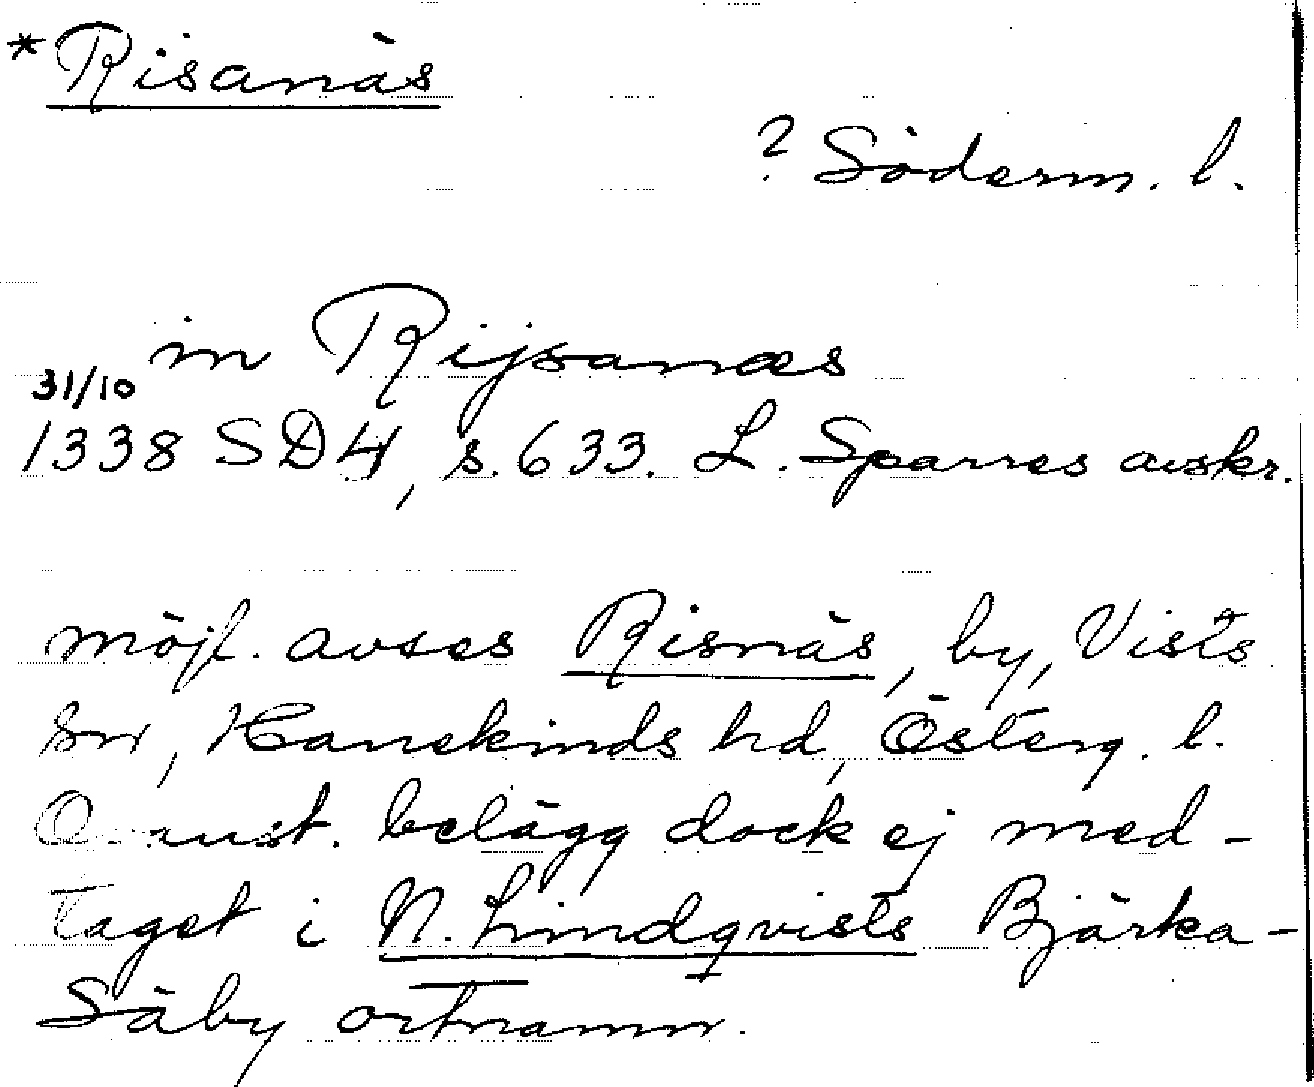 *Risanäs
? Söderm. l.
in Rijsanæs
31/10
1338 SD4, s. 633. L. Sparres avskr.
möjl. avses Risnäs, by, Vists
sn, Hanekinds hd, Österg. l.
Ovanst. belägg dock ej med-
taget i N. Lindqvists Bjärka-
Säby ortnamn.